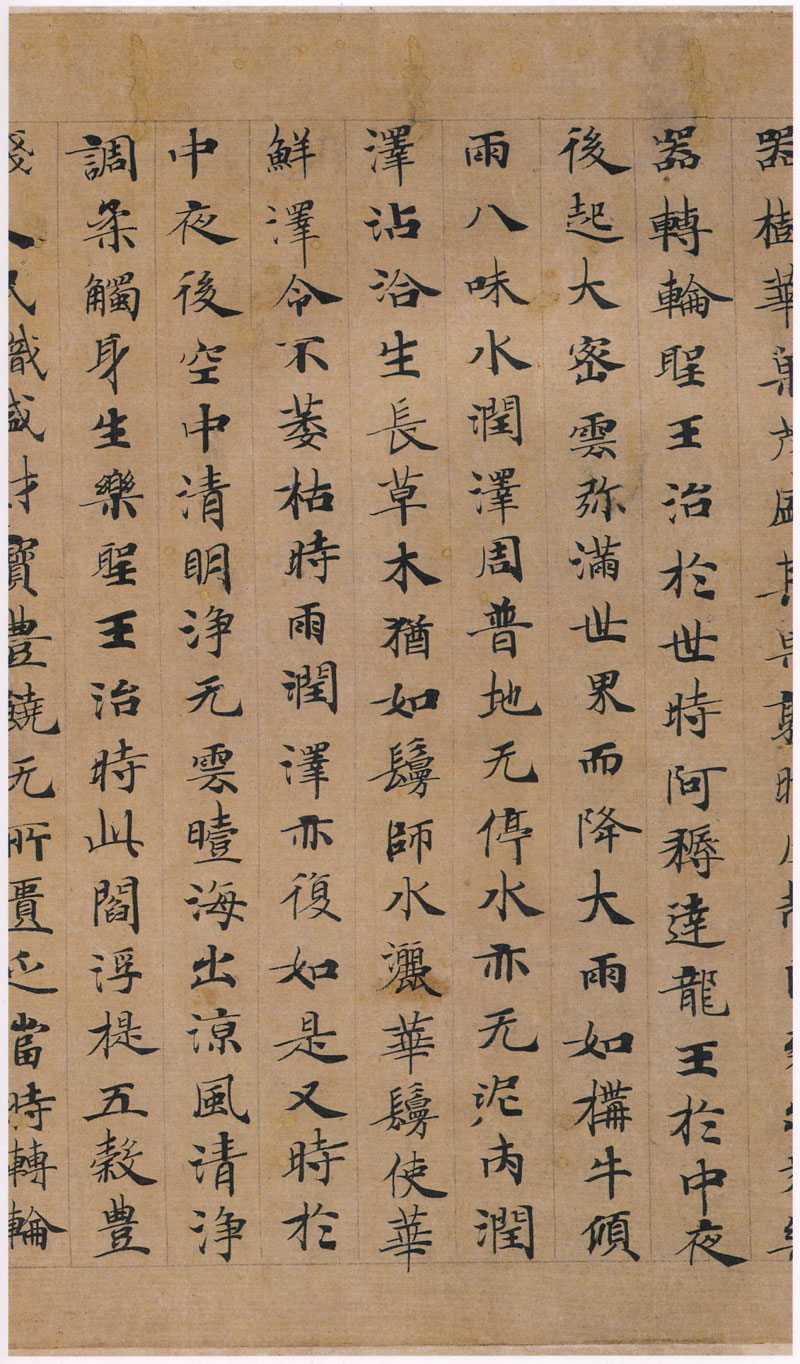 器樹華菓茂盛其果熟時
器轉輪聖王治於世時阿耨達龍王於中夜
後起大密雲弥滿世界而降大雨如構牛傾
雨八味水潤澤周普地无停水亦无泥内潤
澤沾洽生長草木猶如鬘師水灑華鬘使華
鮮澤令不萎枯時雨潤澤亦復如是又時於
中夜後空中清明淨无雲曀海出涼風清淨
調柔觸身生樂聖王治時此閻浮提五穀豊
賤人民熾盛財寶豊饒无所匱乏當時轉輪